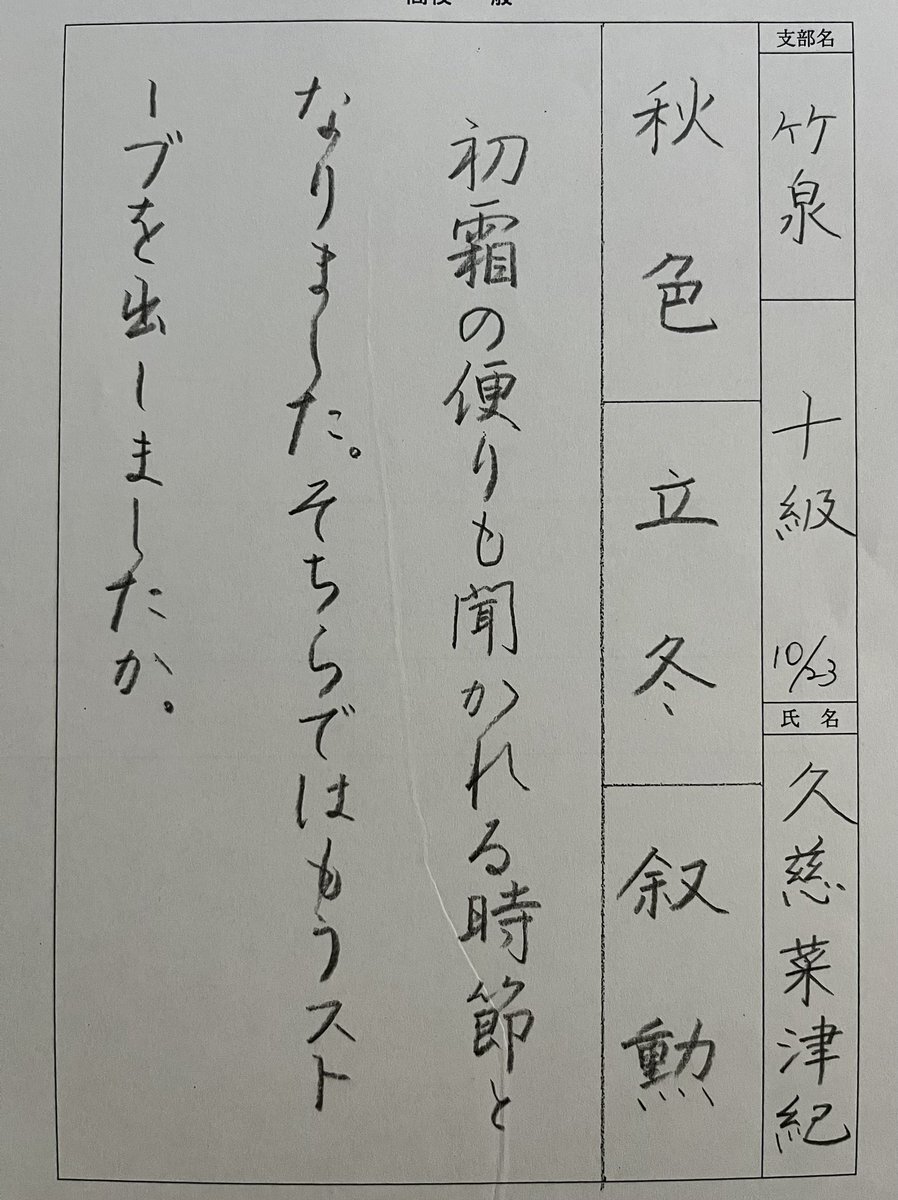 支部名
竹泉
十級
10/23
氏名
久慈菜津紀
秋色
立冬
叙勲
初霜の便りも聞かれる時節と
なりました。そちらではもうスト
ーブを出しましたか。